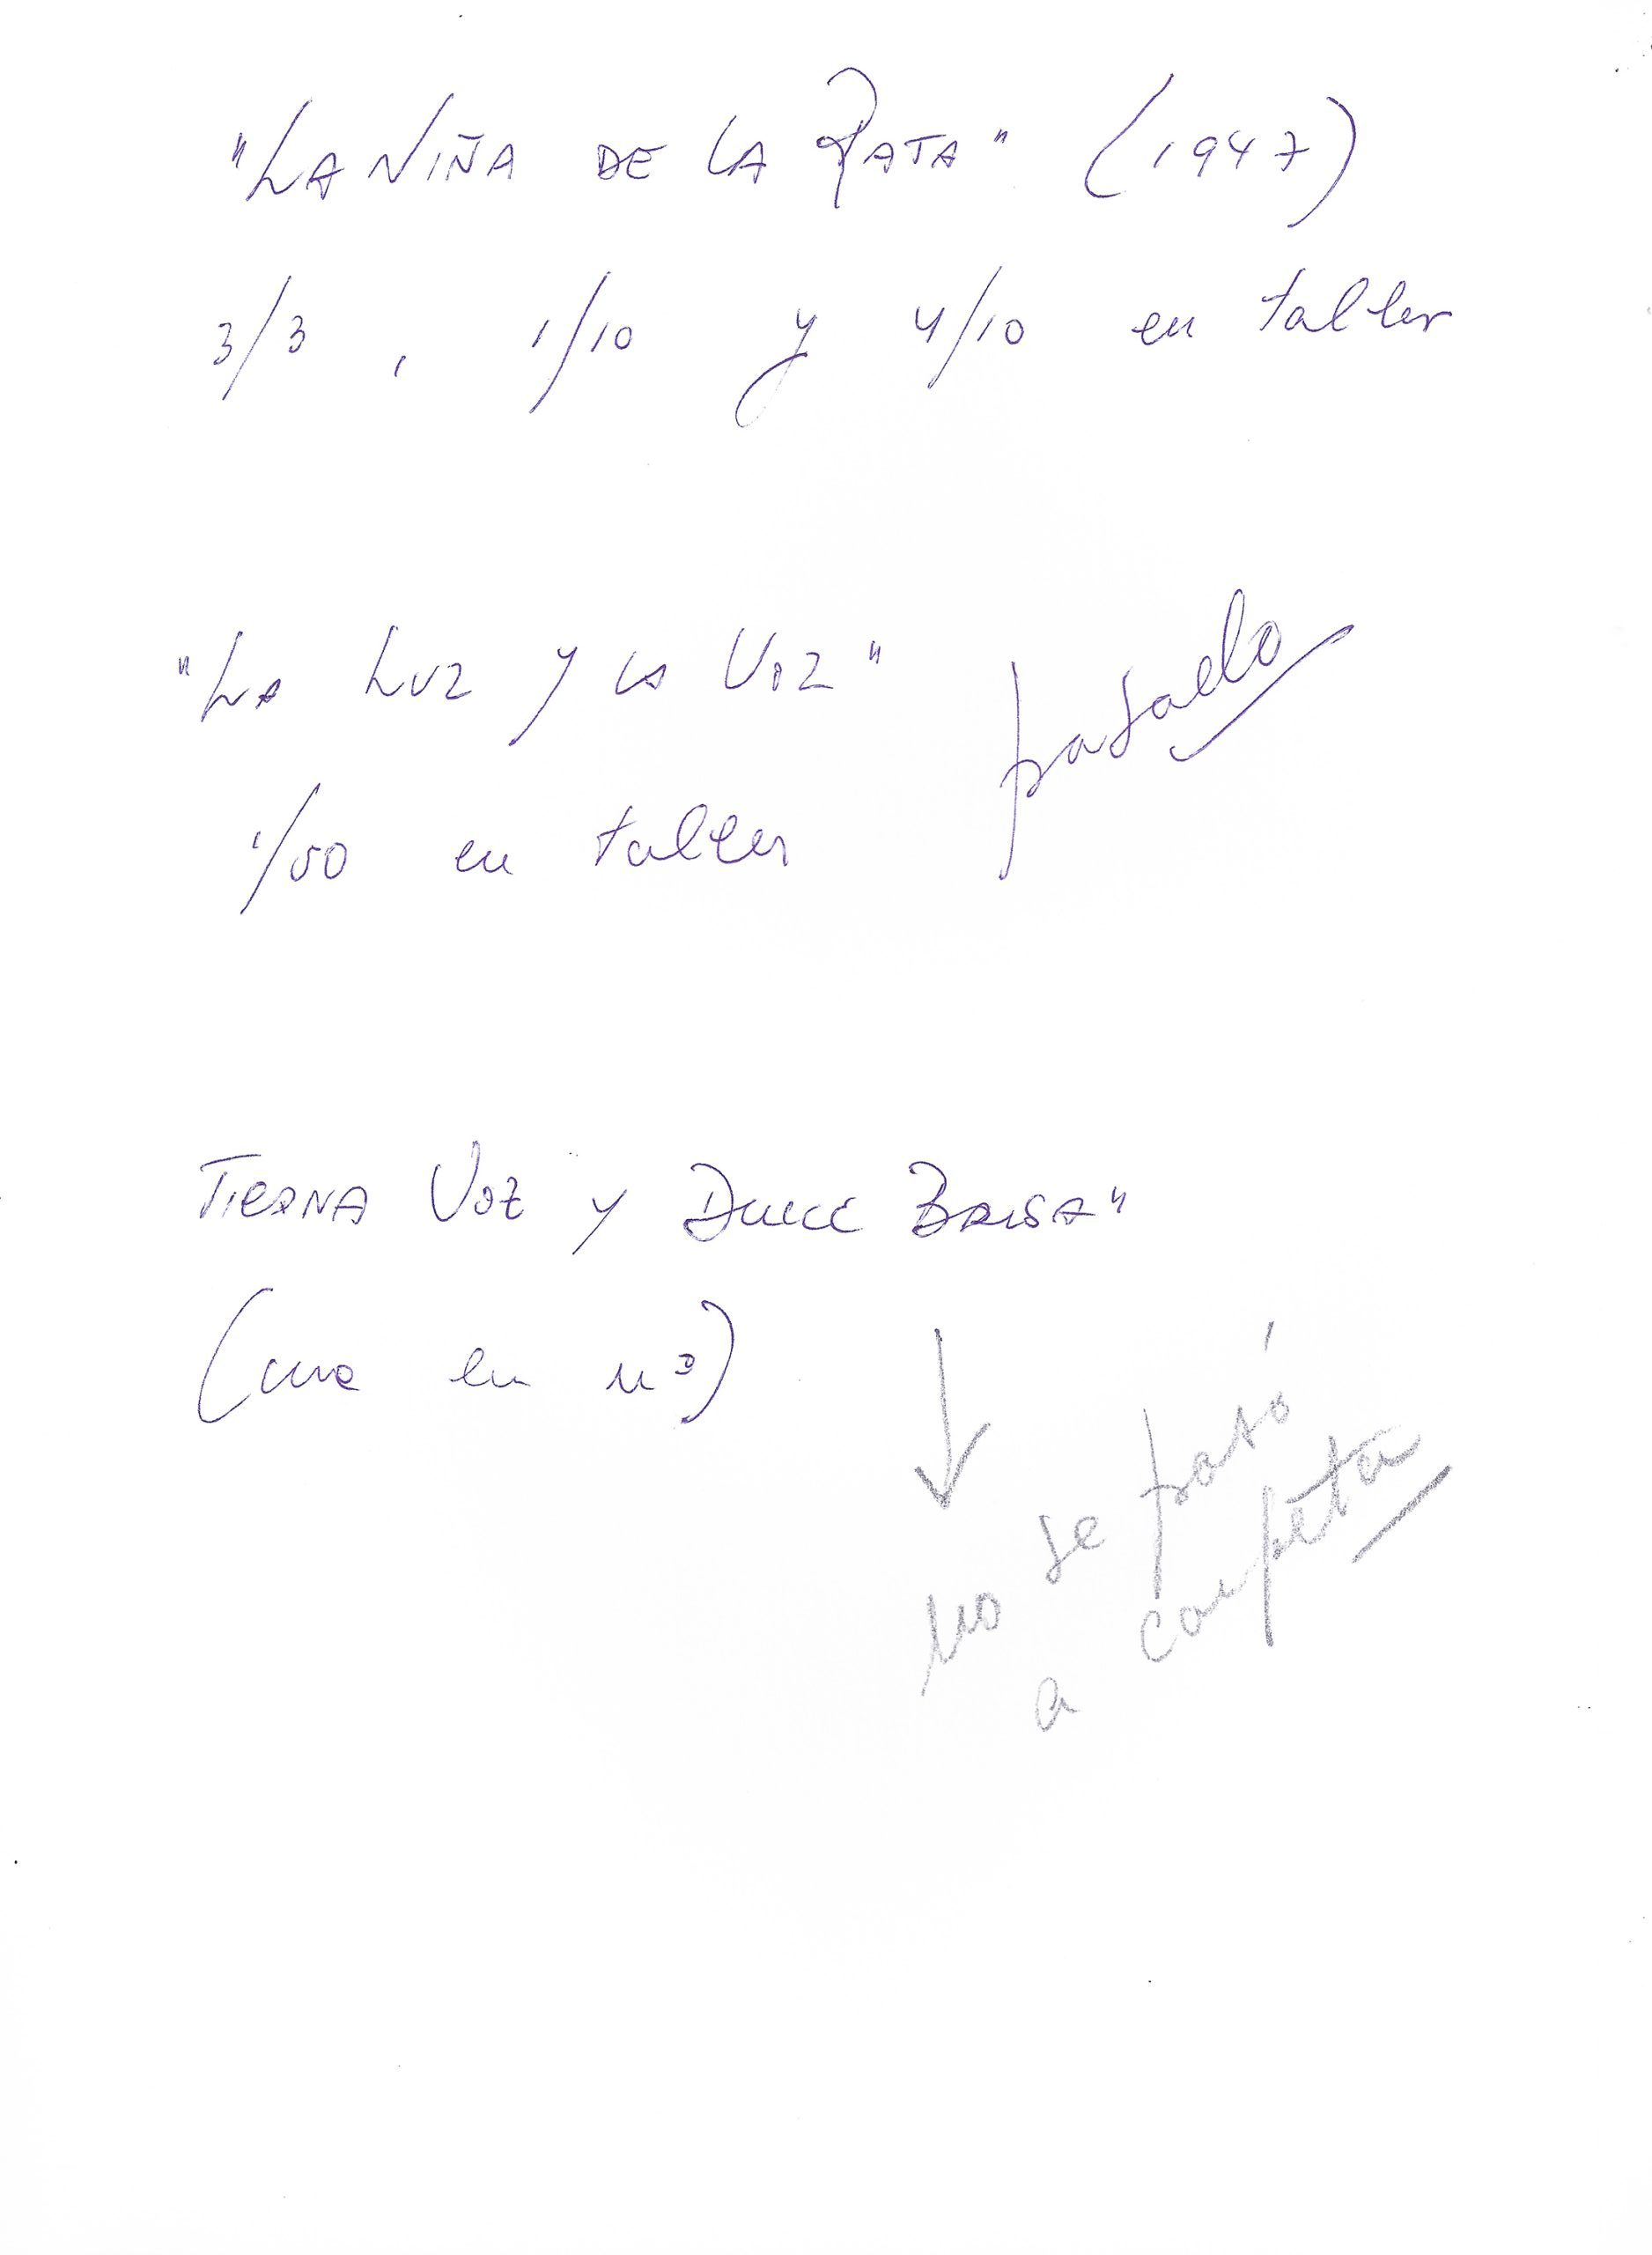 "LA NIÑA DE LA RATA" (1947)
3/3, 1/10 y 4/10 en taller
"LA LUZ Y LA VOZ"
pasado
1/50 en taller
TIERNA VOZ Y DULCE BRISA"
(una en nº)
no se pasó
a carpeta